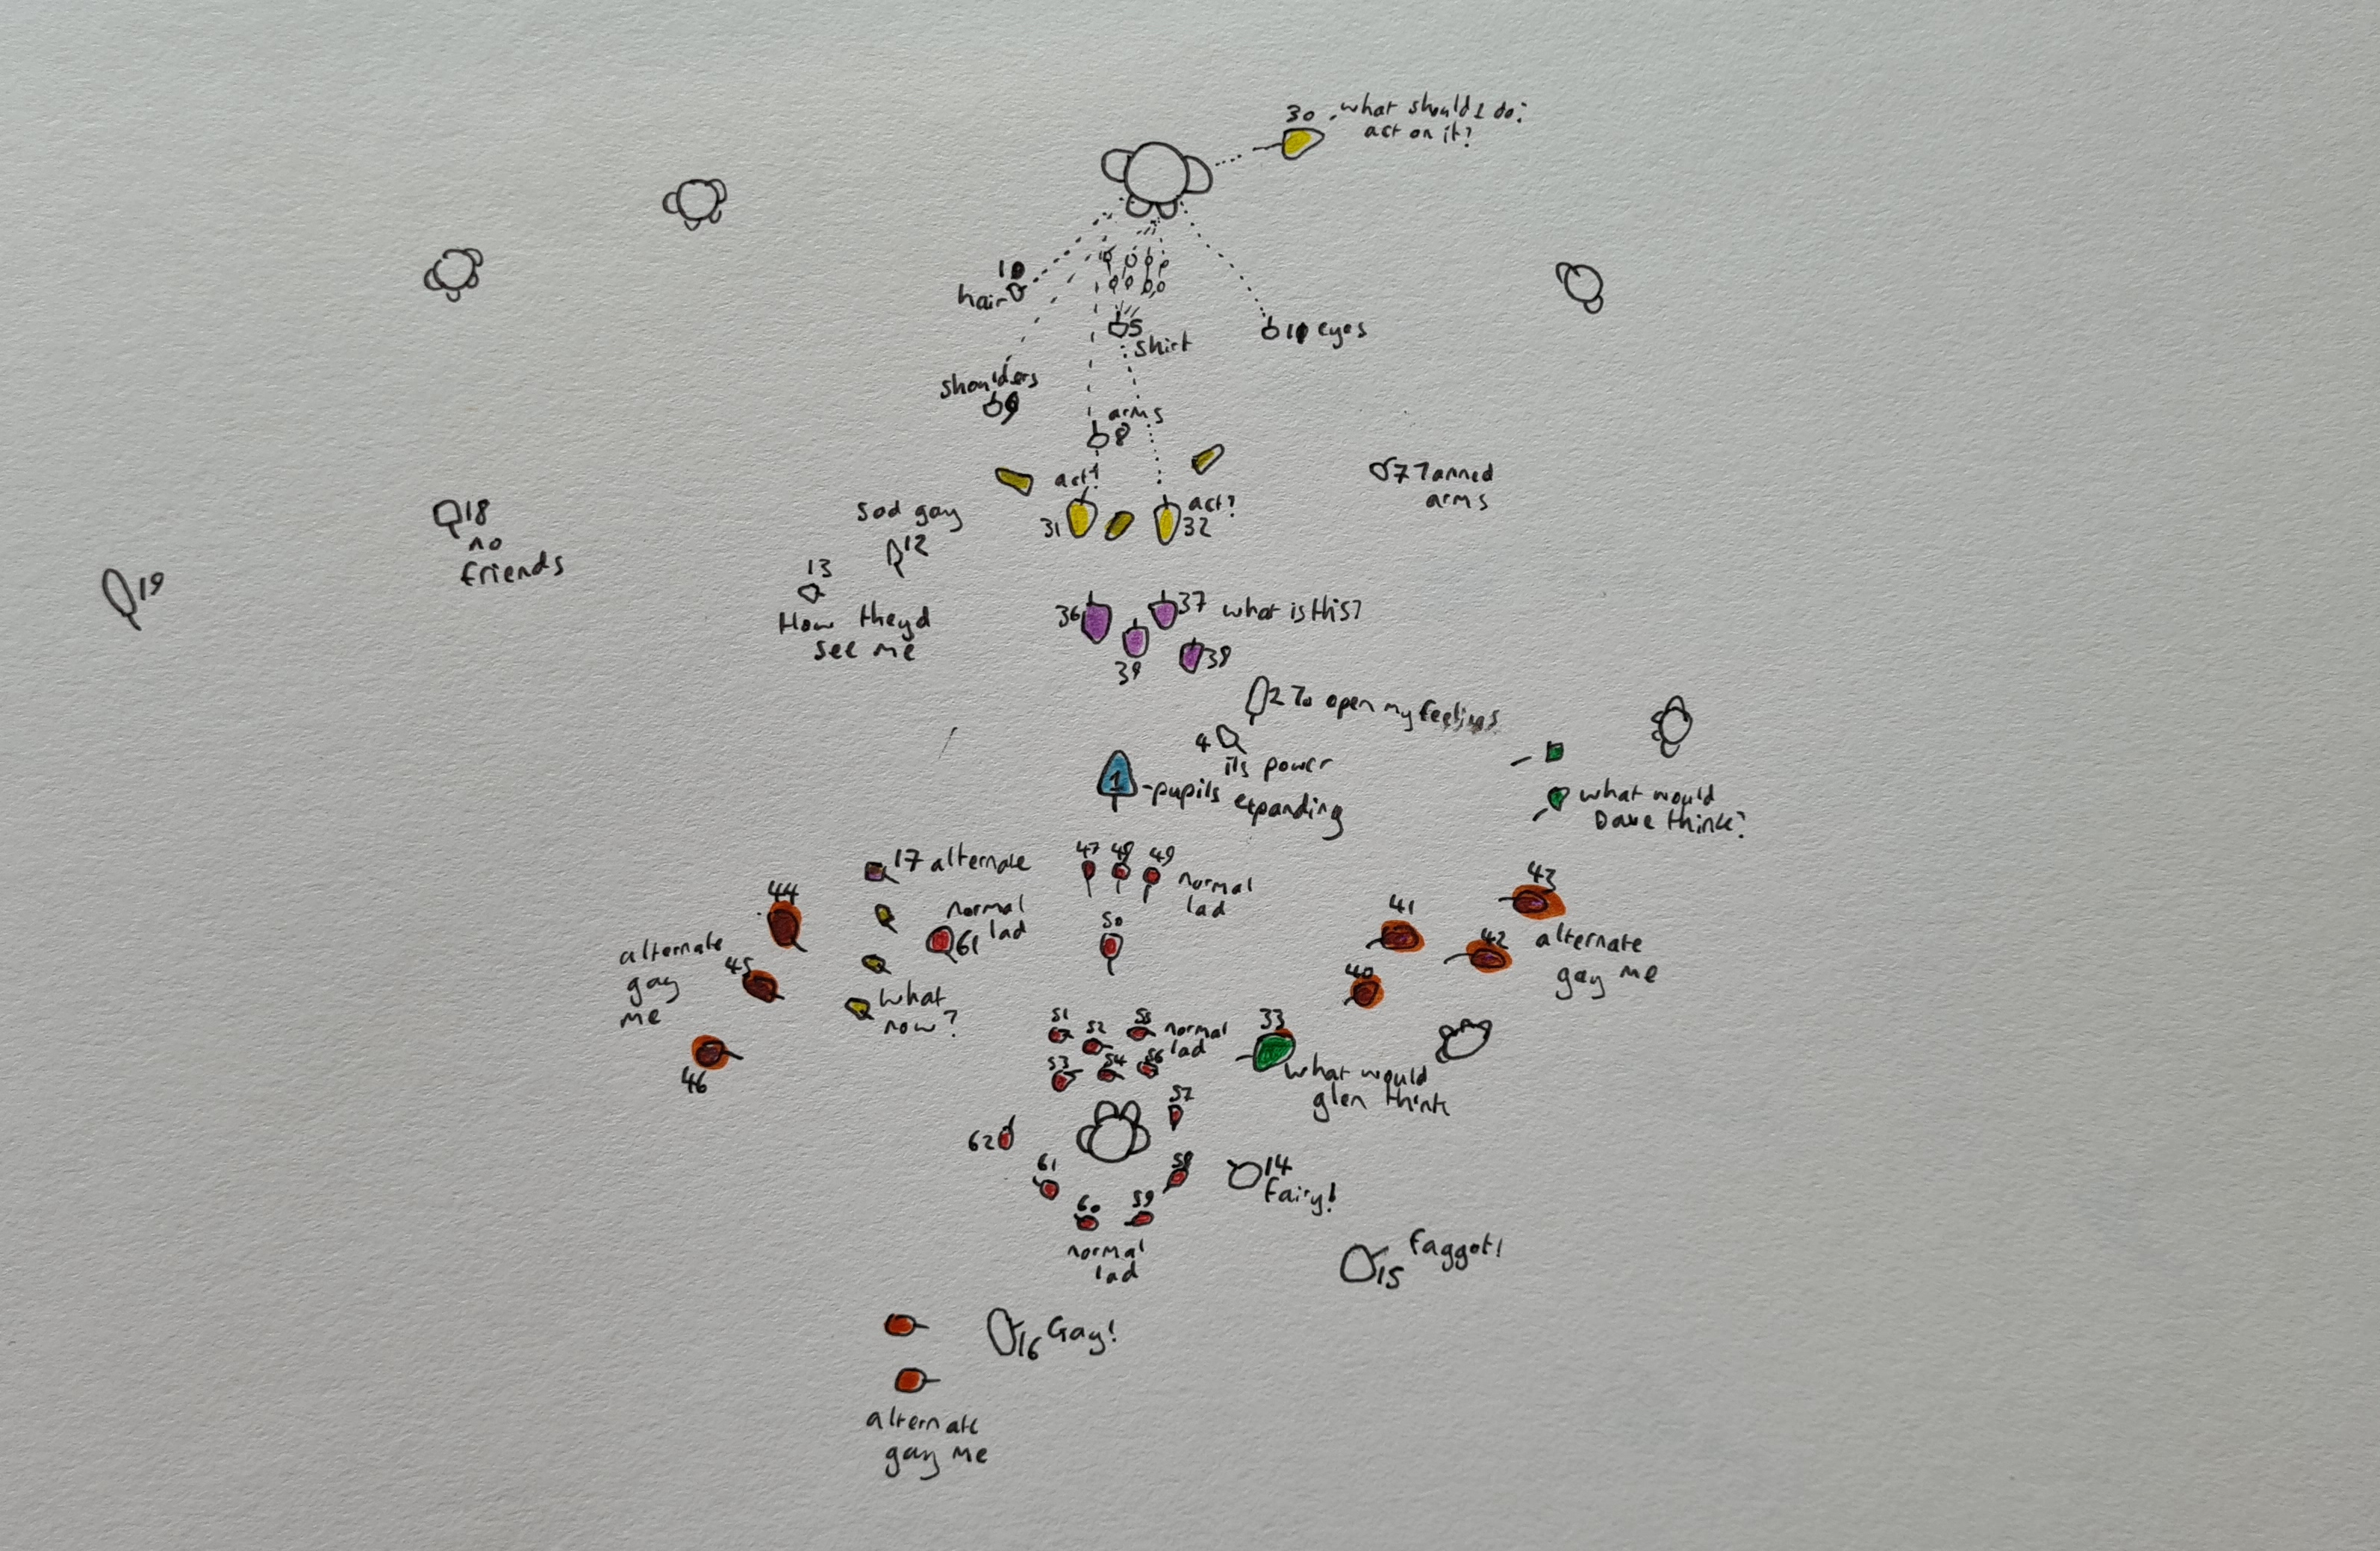 30
what should I do?
act on it?
10
hair
5
shirt
11 eyes
shoulders
9
arms
8
act!
31
act?
32
7 Tanned
arms
sad gay
12
13
How theyd
see me
18
no
friends
19
36
37 what is this?
39
38
2 To open my feelings
4
its power
1
-pupils expanding
what would
Dave think?
17 alternate
47 48 49
normal
lad
50
normal
lad
61
44
alternate
gay
me
45
46
what
now?
41
43
42
40
alternate
gay me
51
52
55
normal
lad
53
54
56
33
what would
glen think
57
62
61
58
60
59
normal
lad
14
Fairy!
faggot!
15
16 Gay!
alternate
gay me